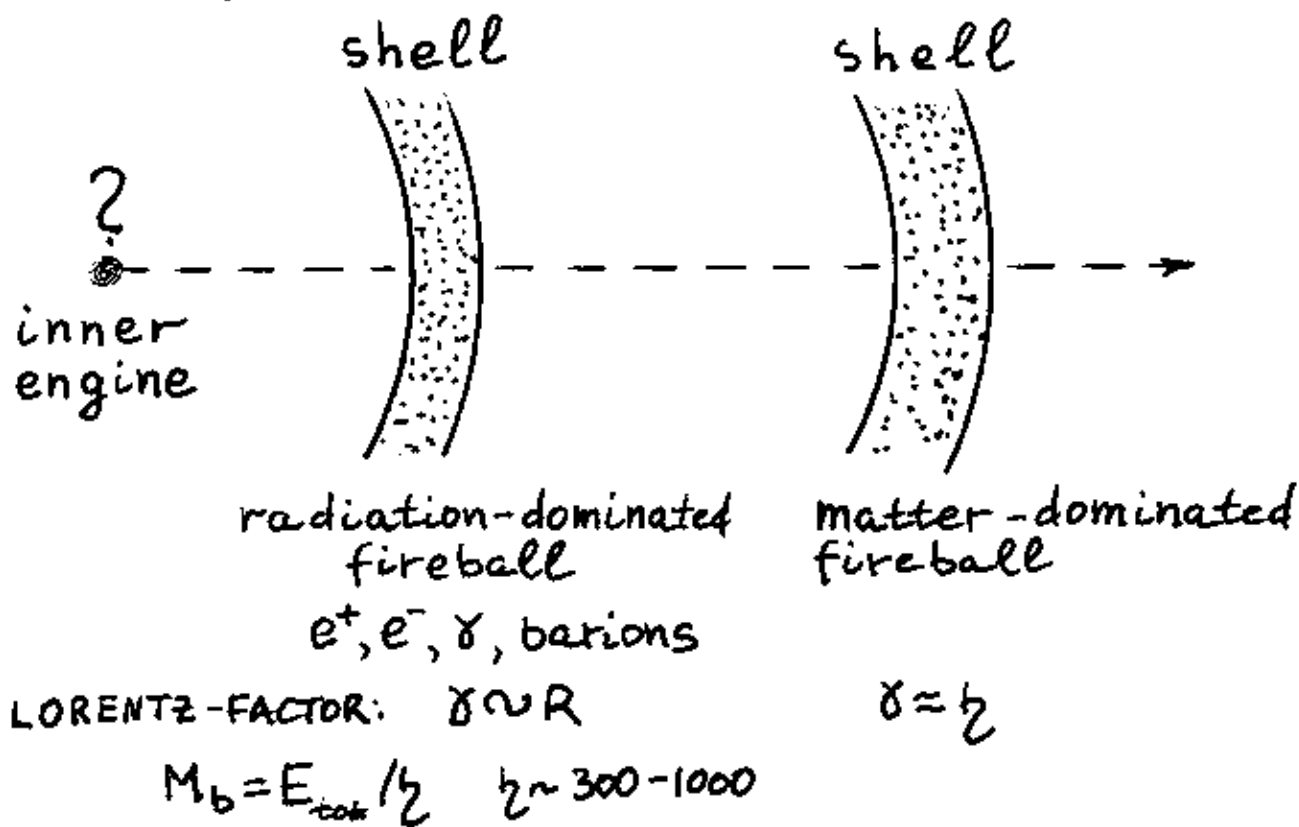 shell shell
?
inner
engine
radiation-dominated matter-dominated
fireball fireball
e⁺, e⁻, γ, barions
LORENTZ-FACTOR: γ ~ R γ ≈ η
M_b = E_tot /η η ~ 300-1000